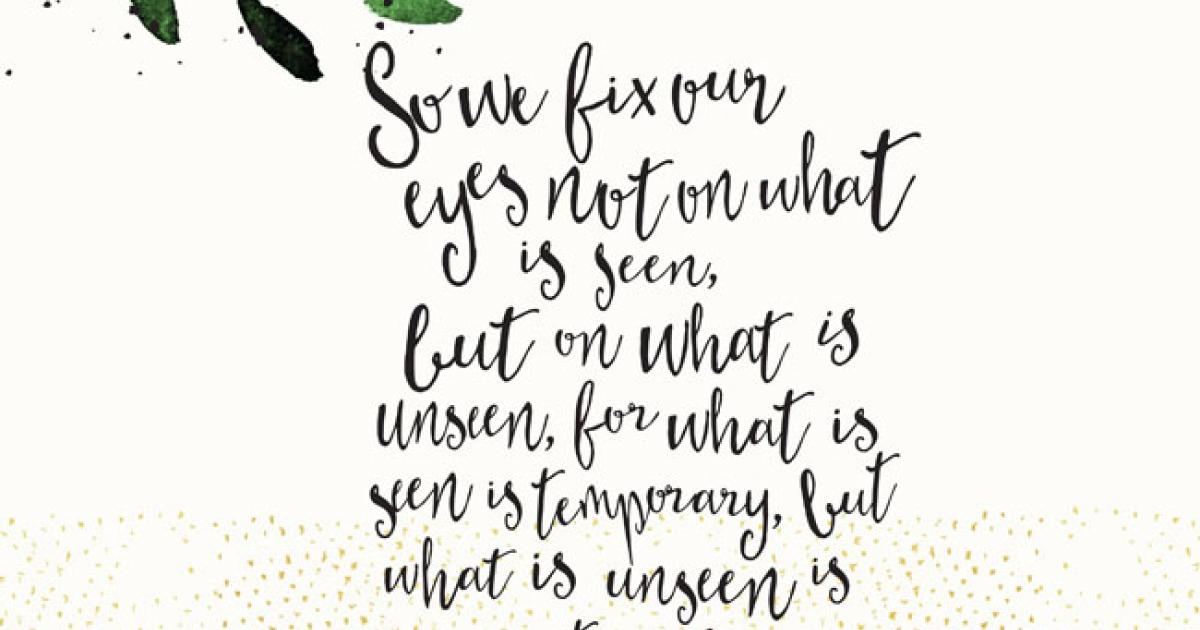 So we fix our
eyes not on what
is seen,
but on what is
unseen, for what is
seen is temporary, but
what is unseen is